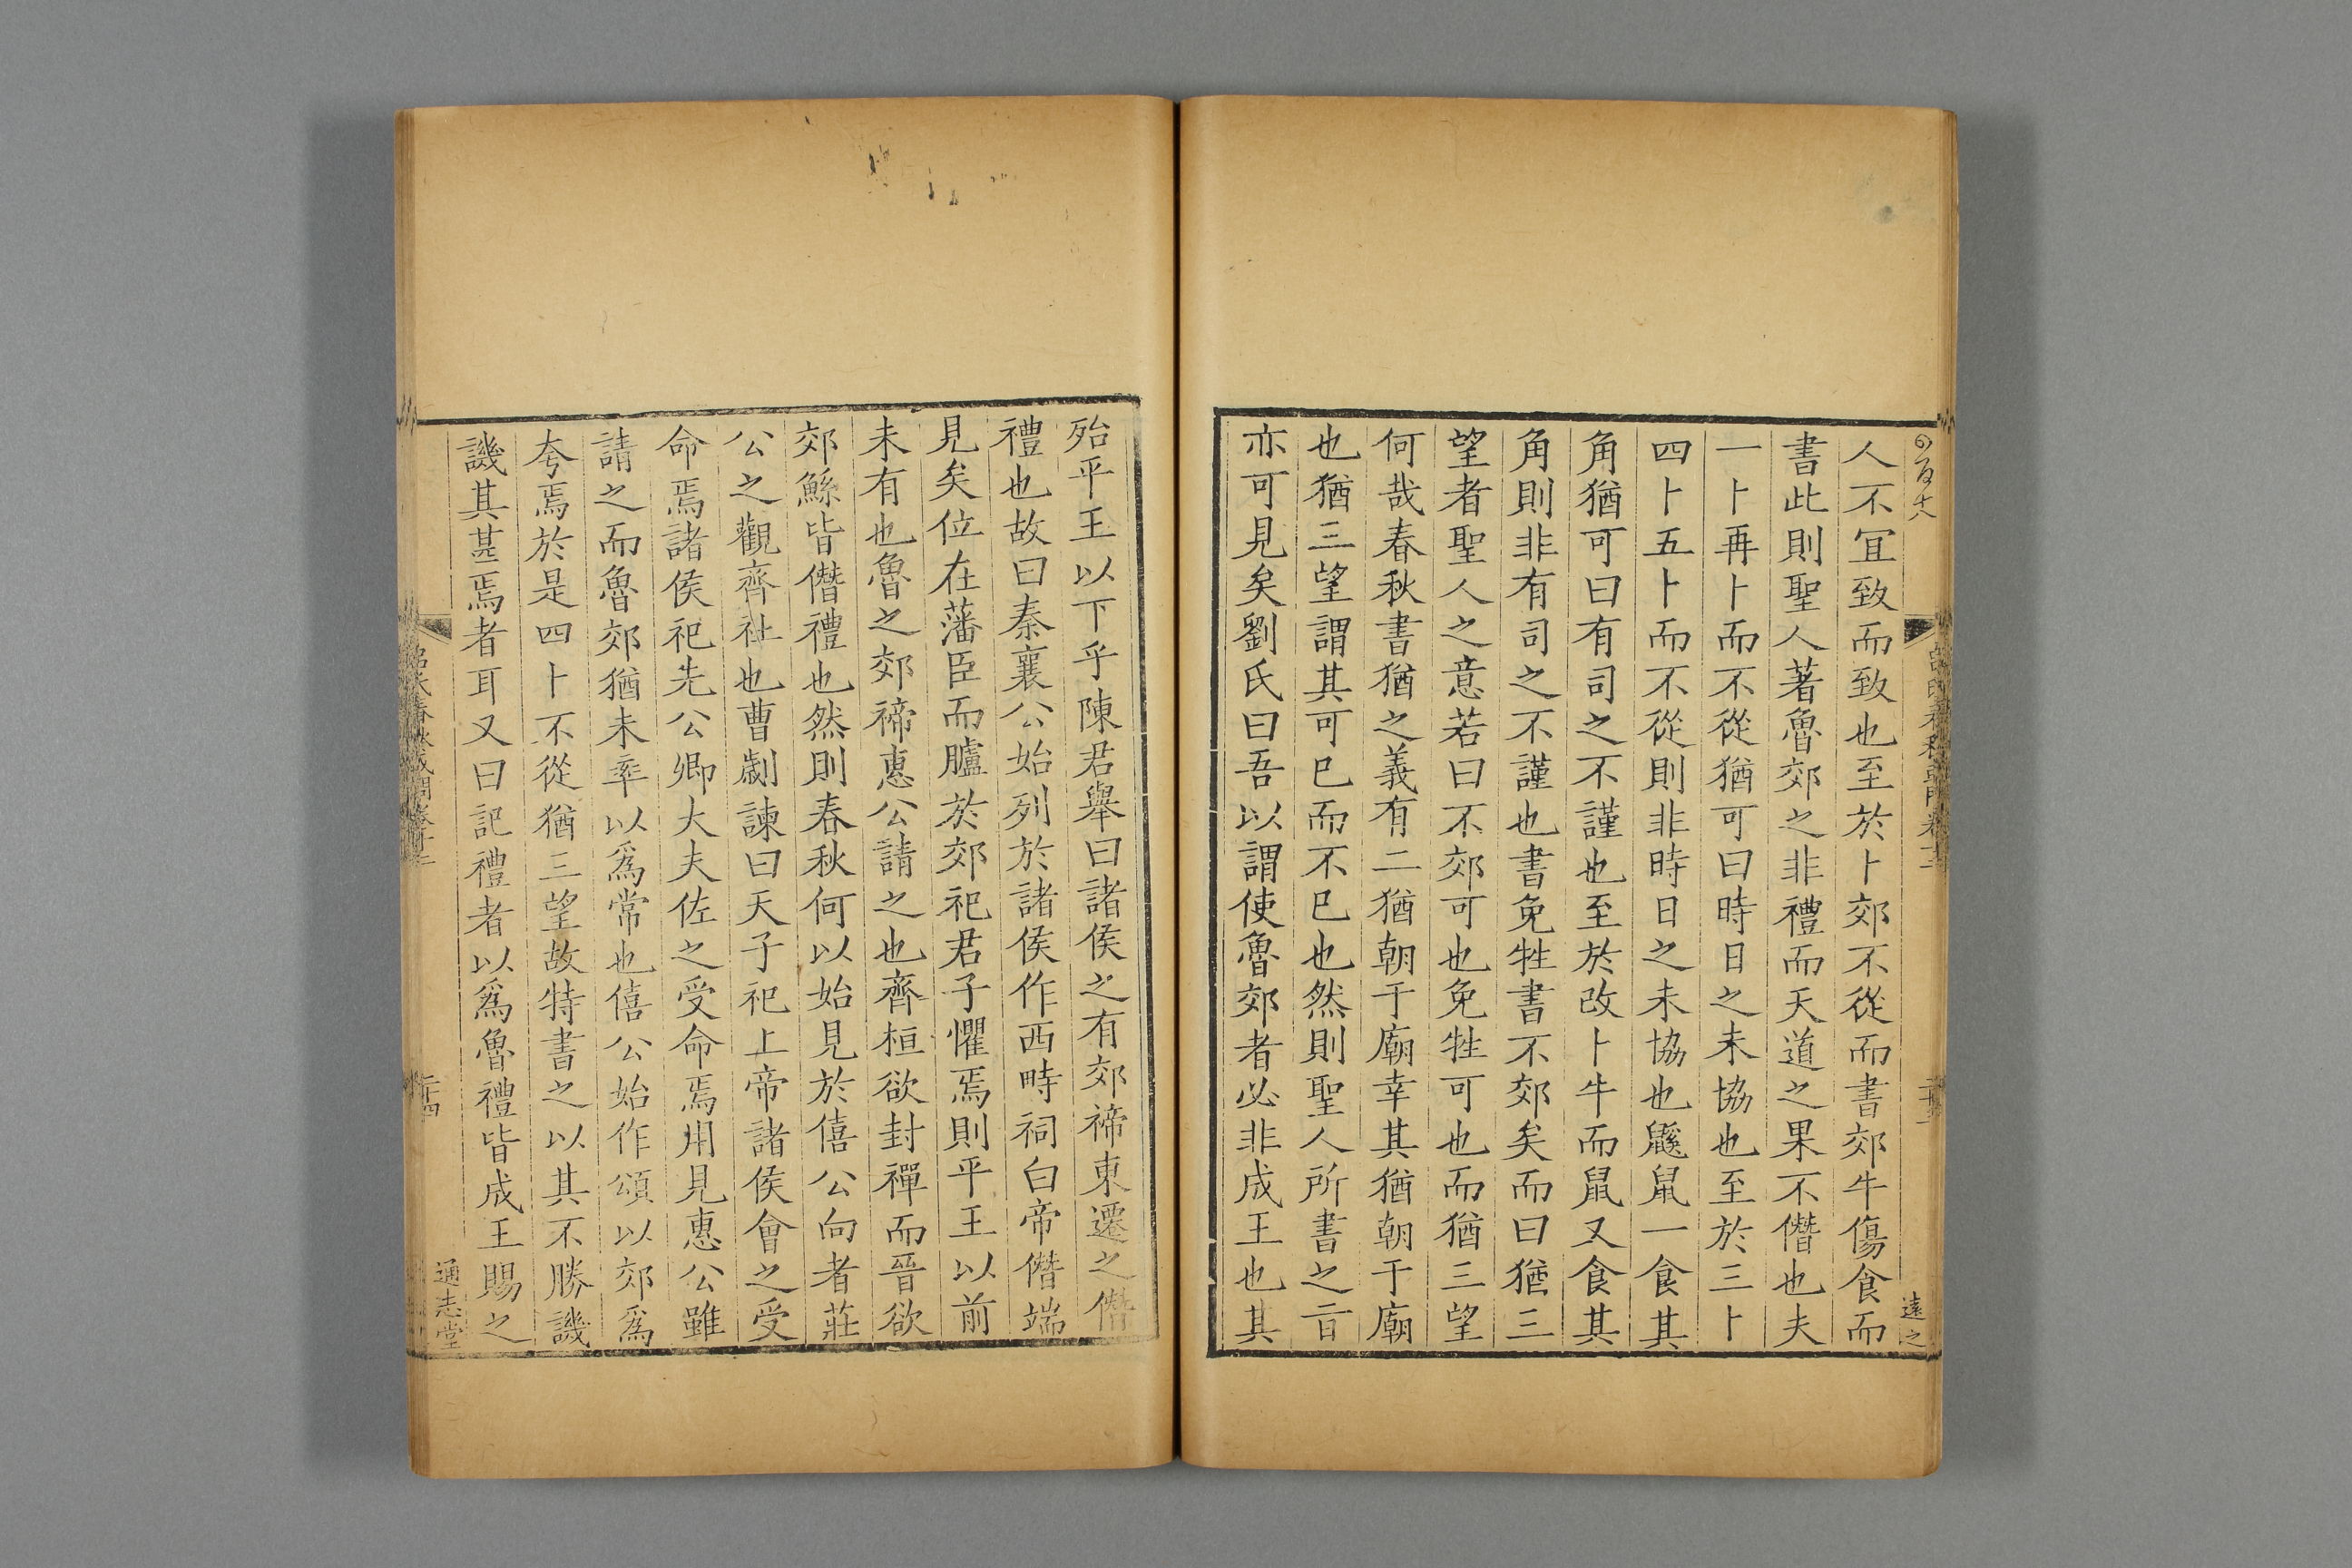 人不宜致而致也至於卜郊不從而書郊牛傷食而
書此則聖人著魯郊之非禮而天道之果不僭也夫
一卜再卜而不從猶可曰時日之未協也至於三卜
四卜五卜而不從則非時日之未協也鼷鼠一食其
角猶可曰有司之不謹也至於改卜牛而鼠又食其
角則非有司之不謹也書免牲書不郊矣而曰猶三
望者聖人之意若曰不郊可也免牲可也而猶三望
何哉春秋書猶之義有二猶朝于廟幸其猶朝于廟
也猶三望謂其可已而不已也然則聖人所書之㫖
亦可見矣劉氏曰吾以謂使魯郊者必非成王也其
殆平王以下乎陳君舉曰諸侯之有郊禘東遷之僭
禮也故曰秦襄公始列於諸侯作西畤祠白帝僭端
見矣位在藩臣而臚於郊祀君子懼焉則平王以前
未有也魯之郊禘惠公請之也齊桓欲封禪而晉欲
郊鯀皆僭禮也然則春秋何以始見於僖公向者莊
公之觀齊社也曹劌諫曰天子祀上帝諸侯會之受
命焉諸侯祀先公卿大夫佐之受命焉用見惠公雖
請之而魯郊猶未率以為常也僖公始作頌以郊為
夸焉於是四卜不從猶三望故特書之以其不勝譏
譏其甚焉者耳又曰記禮者以為魯禮皆成王賜之
二十四
通志堂